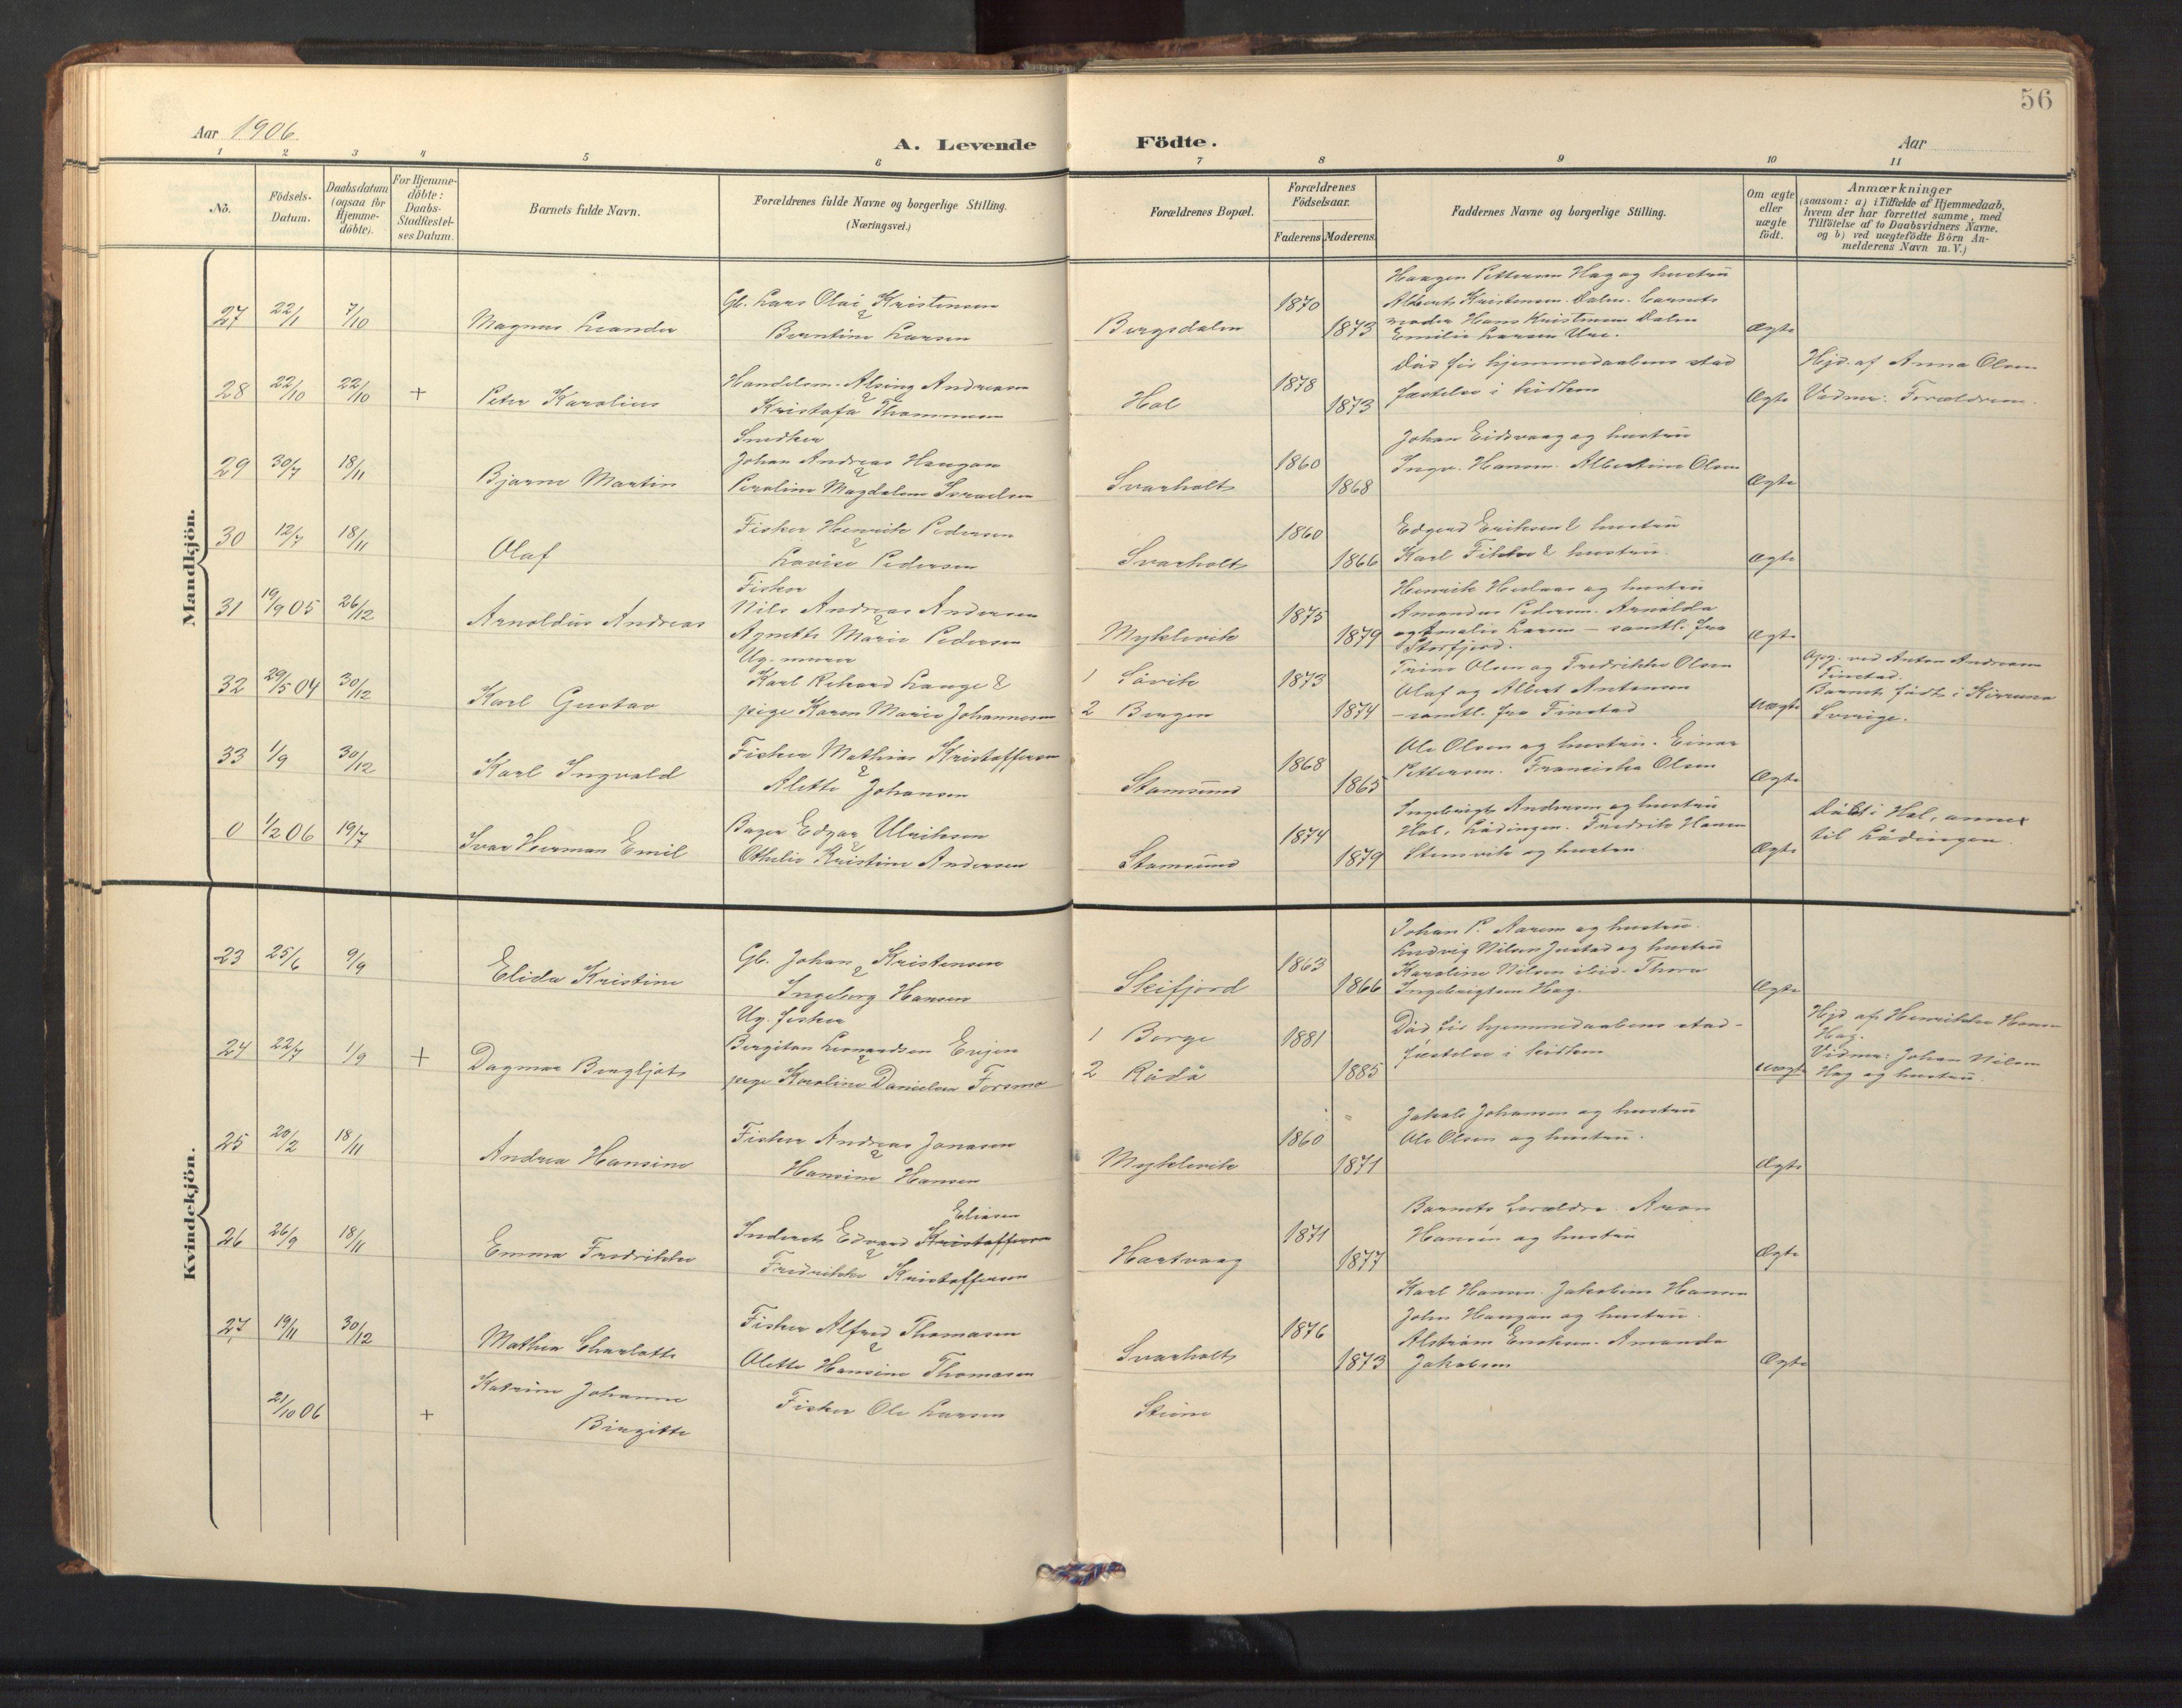 56
Aar 1906.
A. Levende Födte.
Aar
1 2 3 4 5 6 7 8 9 10 11
No.
Födsels-Datum.
Daabsdatum (ogsaa for Hjemme-döbte).
For Hjemme-döbte: Daabs-Stadfestel-ses Datum.
Barnets fulde Navn.
Forældrenes fulde Navne og borgerlige Stilling.
(Næringsvei.)
Forældrenes Bopæl.
Forældrenes Födselsaar.
Faderens Moderens
Faddernes Navne og borgerlige Stilling.
Om ægte eller uægte födt.
Anmærkninger
(saasom: a) i Tilfælde af Hjemmedaab, hvem der har forrettet samme, med Tilföielse af to Daabsvidners Navne, og b) ved uægtefödte Börn An-melderens Navn m. V.)
Mandkjön.
27 22/1 7/10 Magnus Leander
Gb. Lars Olai Kristensen
&
Berntine Larsen
Borgsdalen 1870 1873
Haagen Pettersen Hag og hustru
Albert Kristensen Dalen. Barnets
moder Hans Kristensen Dalen
Emilie Larsen Ure.
Ægte
28 22/10 22/10 + Peter Karolius
Handelsm. Alsing Andreasen
&
Kristofa Thommesen
Hol 1878 1873
Död för hjemmedaabens stad
fæstelse i kirken
Ægte
Hjd. af Anna Olsen
Vidner: Forældrene.
29 30/7 18/11 Bjarne Martin
Snedker
Johan Andreas Haugan
&
Peroline Magdalene Israelsen
Svarholt 1860 1868
Johan Eidsvaag og hustru
Ingv. Hansen. Albertine Olsen
Ægte
30 12/7 18/11 Olaf
Fisker Henrik Pedersen
&
Lovise Pedersen
Svarholt 1860 1866
Edvard Eriksen & hustru
Karl Fikke & hustru.
Ægte
31 19/9 05 26/12 Arnoldus Andreas
Fisker
Nils Andreas Andersen
&
Agnethe Marie Pedersen
Myklevik 1875 1879
Henrik Heslaas og hustru
Amandus Pedersen. Arnolda
og Amalie Larsen – samtl. fra
Storfjord.
Ægte
32 29/5 04 30/12 Karl Gustav
Ug. murer
Karl Rikard Lange &
pige Karen Marie Johannesen
1 Lövik
2 Bergen
1873 1874
Trine Olsen og Fredrikke Olsen
Olaf og Albert Antonsen
– samtl. fra Finstad
uægte
Opg. ved Anton Andreasen
Finstad.
Barnet födt i Kiruna
Sverige.
33 1/9 30/12 Karl Ingvald
Fisker Mathias Kristoffersen
&
Alette Johansen
Stamsund 1868 1865
Ole Olsen og hustru. Einar
Pettersen. Franciska Olsen
Ægte
0 1/2 06 19/7 Ivar Herman Emil
Bager Edgar Ulriksen
&
Othelie Kristine Andersen
Stamsund 1874 1879
Ingebrigt Andersen og hustru
Hol, Lödingen. Fredrik Hansen
Stensvik og hustru.
Ægte
Döbt i Hol, annex
til Lödingen.
Kvindekjön.
23 25/6 9/9 Elida Kristine
Gb. Johan Kristensen
&
Ingeborg Hansen
Skifjord 1863 1866
Johan P. Aasen og hustru.
Ludvig Nilsen Justad og hustru
Karoline Nilsen ibid. Thora
Ingebrigtsen Hag.
Ægte
24 22/7 1/9 + Dagmar Bergljot
Ug. fisker
Bergiton Leonardsen Evjen
&
pige Karoline Danielsen Forsmo
1 Borge
2 Rödö
1881 1885
Död för hjemmedaabens stad-
fæstelse i kirken
uægte
Hjd af Henrikke Hansen
Hag.
Vidner: Johan Nilsen
Hag og hustru.
25 20/2 18/11 Andrea Hansine
Fisker Andreas Jonasen
&
Hansine Hansen
Myklevik 1860 1871
Jakob Johansen og hustru
Ole Olsen og hustru.
Ægte
26 26/9 18/11 Emma Fredrikke
Eliasen
Inderst Edvard Kristoffersen
&
Fredrikke Kristoffersen
Hartvaag 1871 1877
Barnets forældre. Aron
Hansen og hustru
Ægte
27 19/11 30/12 Mathea Charlotte
Fisker Alfred Thomasen
&
Olette Hansine Thomasen
Svarholt 1876 1873
Karl Hansen. Jakobine Hansen
John Haugan og hustru.
Alström Eriksen. Amanda
Jakobsen
Ægte
21/10 06 + Katrine Johanne
Birgitte
Fisker Ole Larsen
Steine